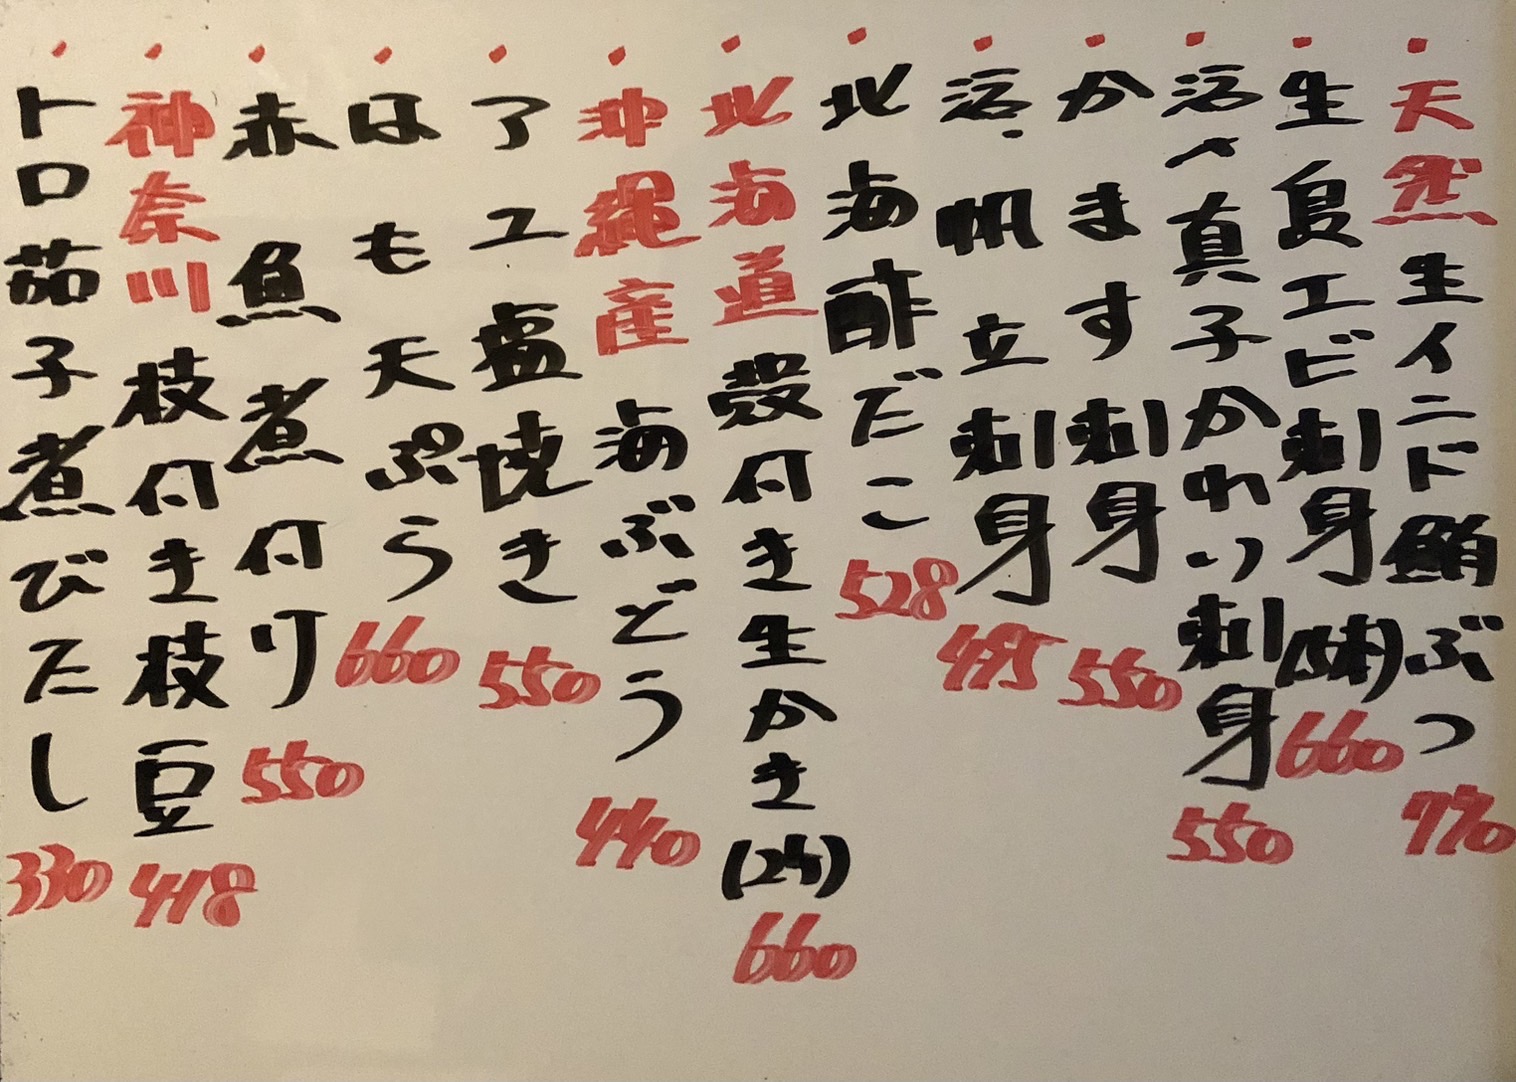 ・天然生インド鮪ぶつ 770
・生島エビ刺身(5本) 660
・活〆真子かれい刺身 550
・かます刺身 550
・活、帆立刺身 495
・北海酢だこ 528
・北海道殻付き生かき(2ケ) 660
・沖縄産海ぶどう 440
・アユ塩焼き 550
・はも天ぷら 660
・赤魚煮付け 550
・神奈川枝付き枝豆 418
・トロ茄子煮びたし 330